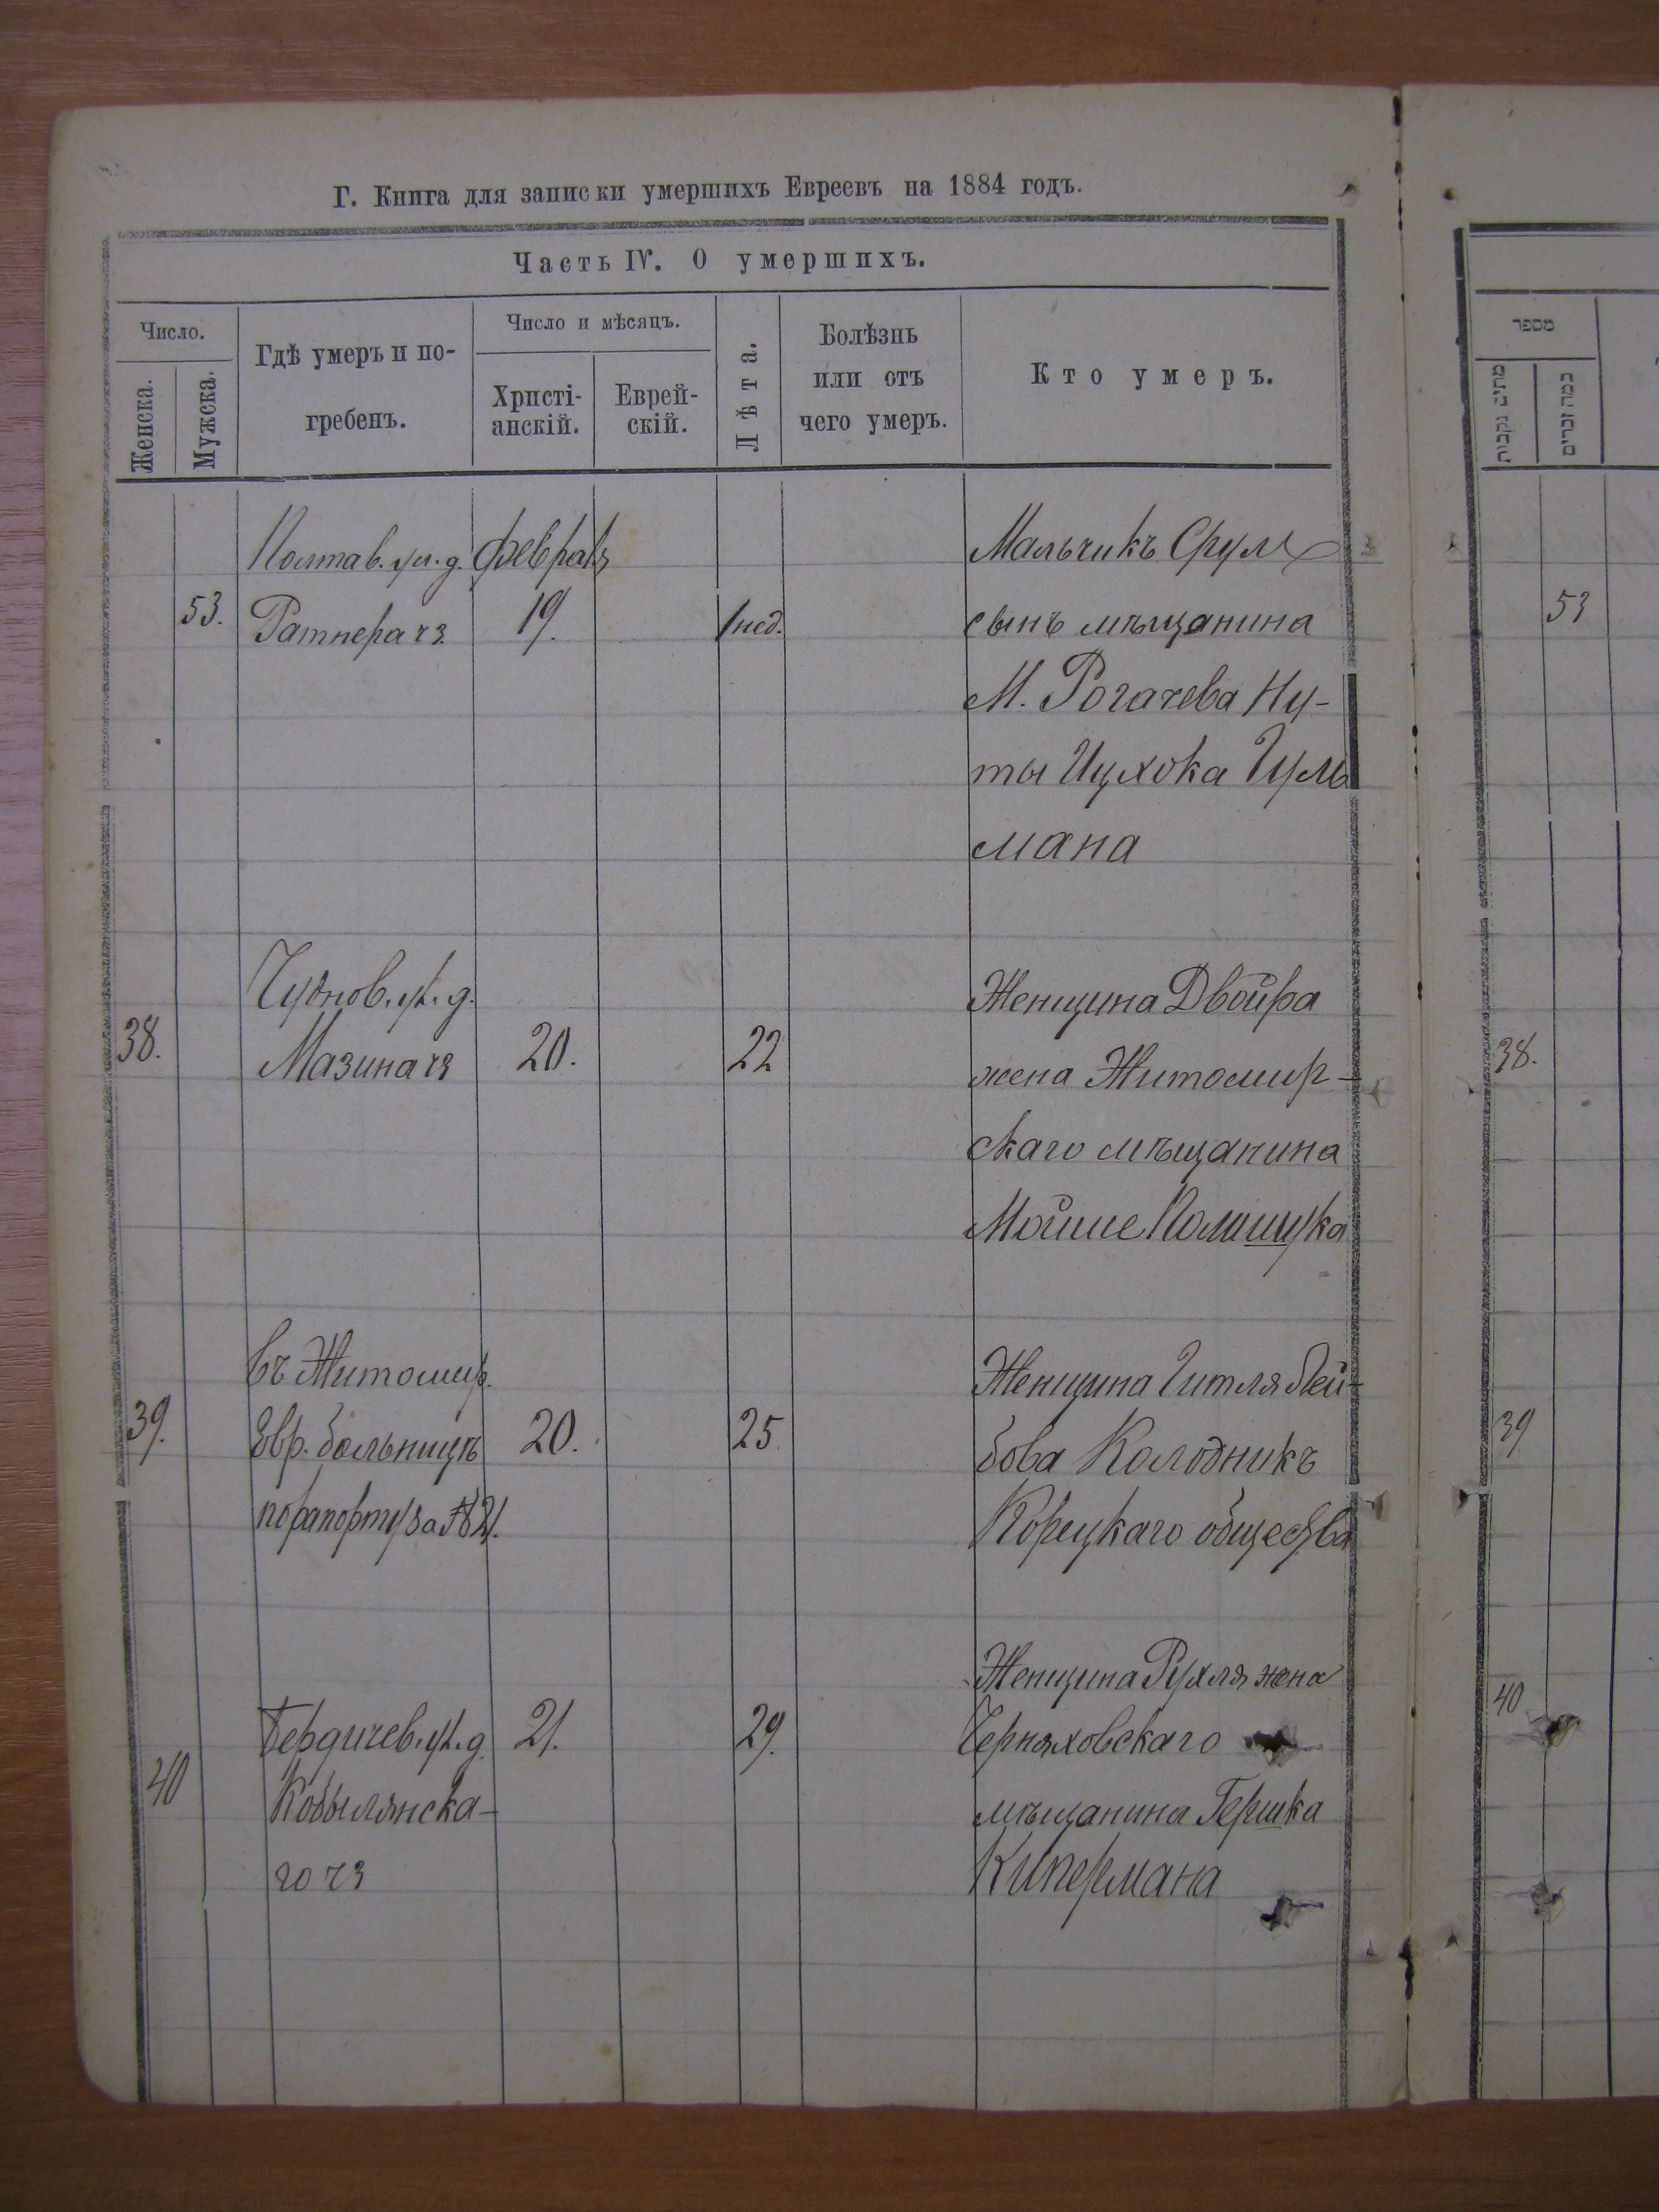 Г. Книга для записки умершихъ Евреевъ на 1884 годъ.
Часть IV. О умершихъ.
Число.
Женска.
Мужска.
Гдѣ умеръ и по-
гребенъ.
Число и мѣсяцъ.
Христі-
анскій.
Еврей-
скій.
Лѣта.
Болѣзнь
или отъ
чего умеръ.
Кто умеръ.
מספר
מתים נקבות
כמה זכרים
Полтав. ул. д. февраля Мальчикъ Срулъ
53. Ратнера чз 19. 1 нед. сынъ мѣщанина 53
М. Рогачева Ну-
ты Ицхока Гуль
мана
Чуднов. ул. д. Женщина Двойра
38. Мазина чз 20. 22 жена Житомир- 38.
скаго мѣщанина
Мойше Полищука
въ Житомир. Женщина Гитля Лей-
39. Евр. больницѣ 20. 25. бова Колодникъ 39
по рапорту за № 21. Корецкаго общества
Женщина Рухля жена 40
Бердичев. ул. д. 21. 29. Черняховскаго
40 Кобылянска- мѣщанина Гершка
го чз Кипермана